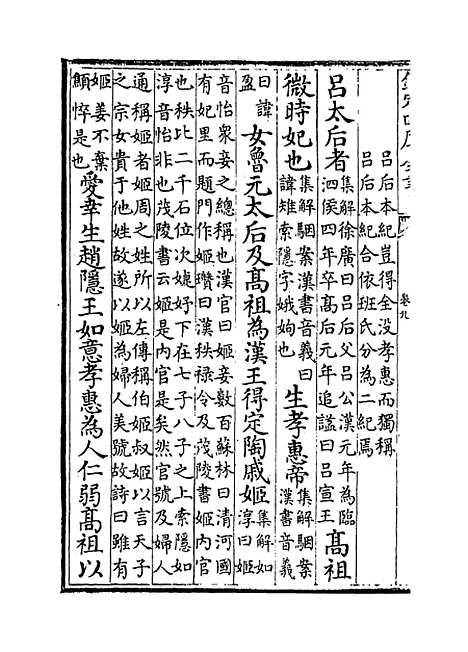 卷九
呂后本紀豈得全没孝惠而獨稱
呂后本紀合依班氏分為二紀焉
呂太后者
集解徐廣曰呂后父呂公漢元年為臨
泗侯四年卒髙后元年追謚曰呂宣王
髙祖
微時妃也
集解駰案漢書音義曰
諱雉索隠字娥姁也
生孝惠帝
集解駰案
漢書音義
曰諱
盈
女魯元太后及髙祖為漢王得定陶戚姬
集解如
淳曰姬
音怡衆妾之總稱也漢官曰姬妾數百蘇林曰清河國
有妃里而題門作姬瓚曰漢秩禄令及茂陵書姬内官
也秩比二千石位次婕妤下在七子八子之上索隠如
淳音怡非也茂陵書云姬是内官是矣然官號及婦人
通稱姬者姬周之姓所以左傳稱伯姬叔姬以言天子
之宗女貴于他姓故遂以姬為婦人美號故詩曰雖有
姬姜不棄
顦悴是也
愛幸生趙隱王如意孝惠為人仁弱髙祖以